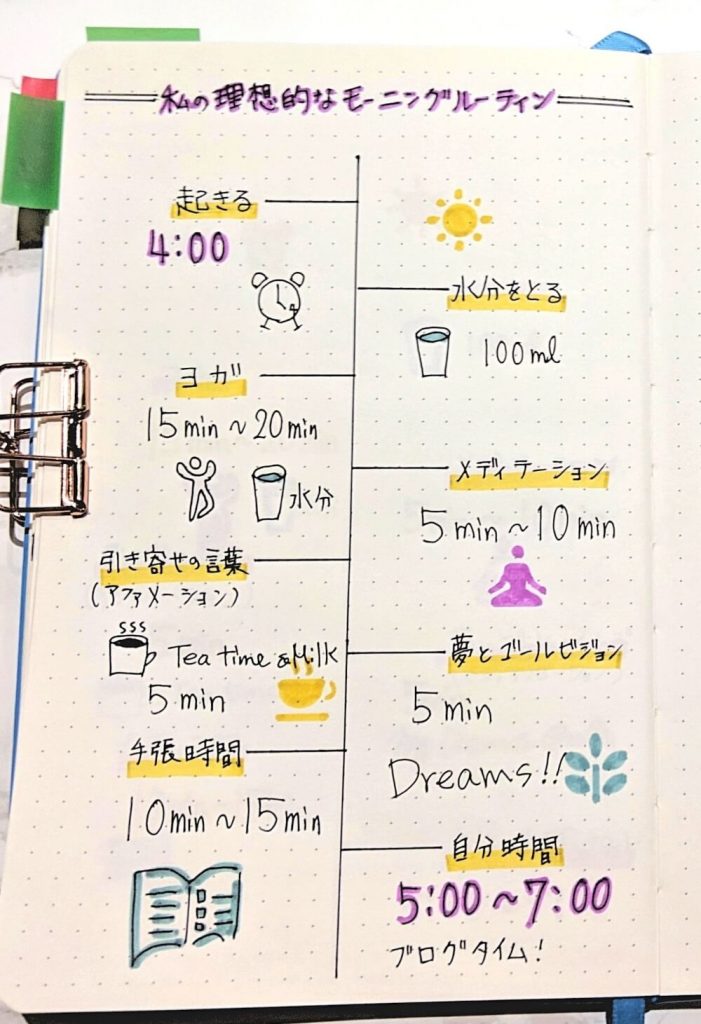 私の理想的なモーニングルーティン
起きる
4:00
水分をとる
100ml
ヨガ
15min〜20min
水分
メディテーション
5min〜10min
引き寄せの言葉
(アファメーション)
Tea time &Milk
5min
夢とゴールビジョン
5min
Dreams!!
手張時間
10min〜15min
自分時間
5:00〜7:00
ブログタイム!